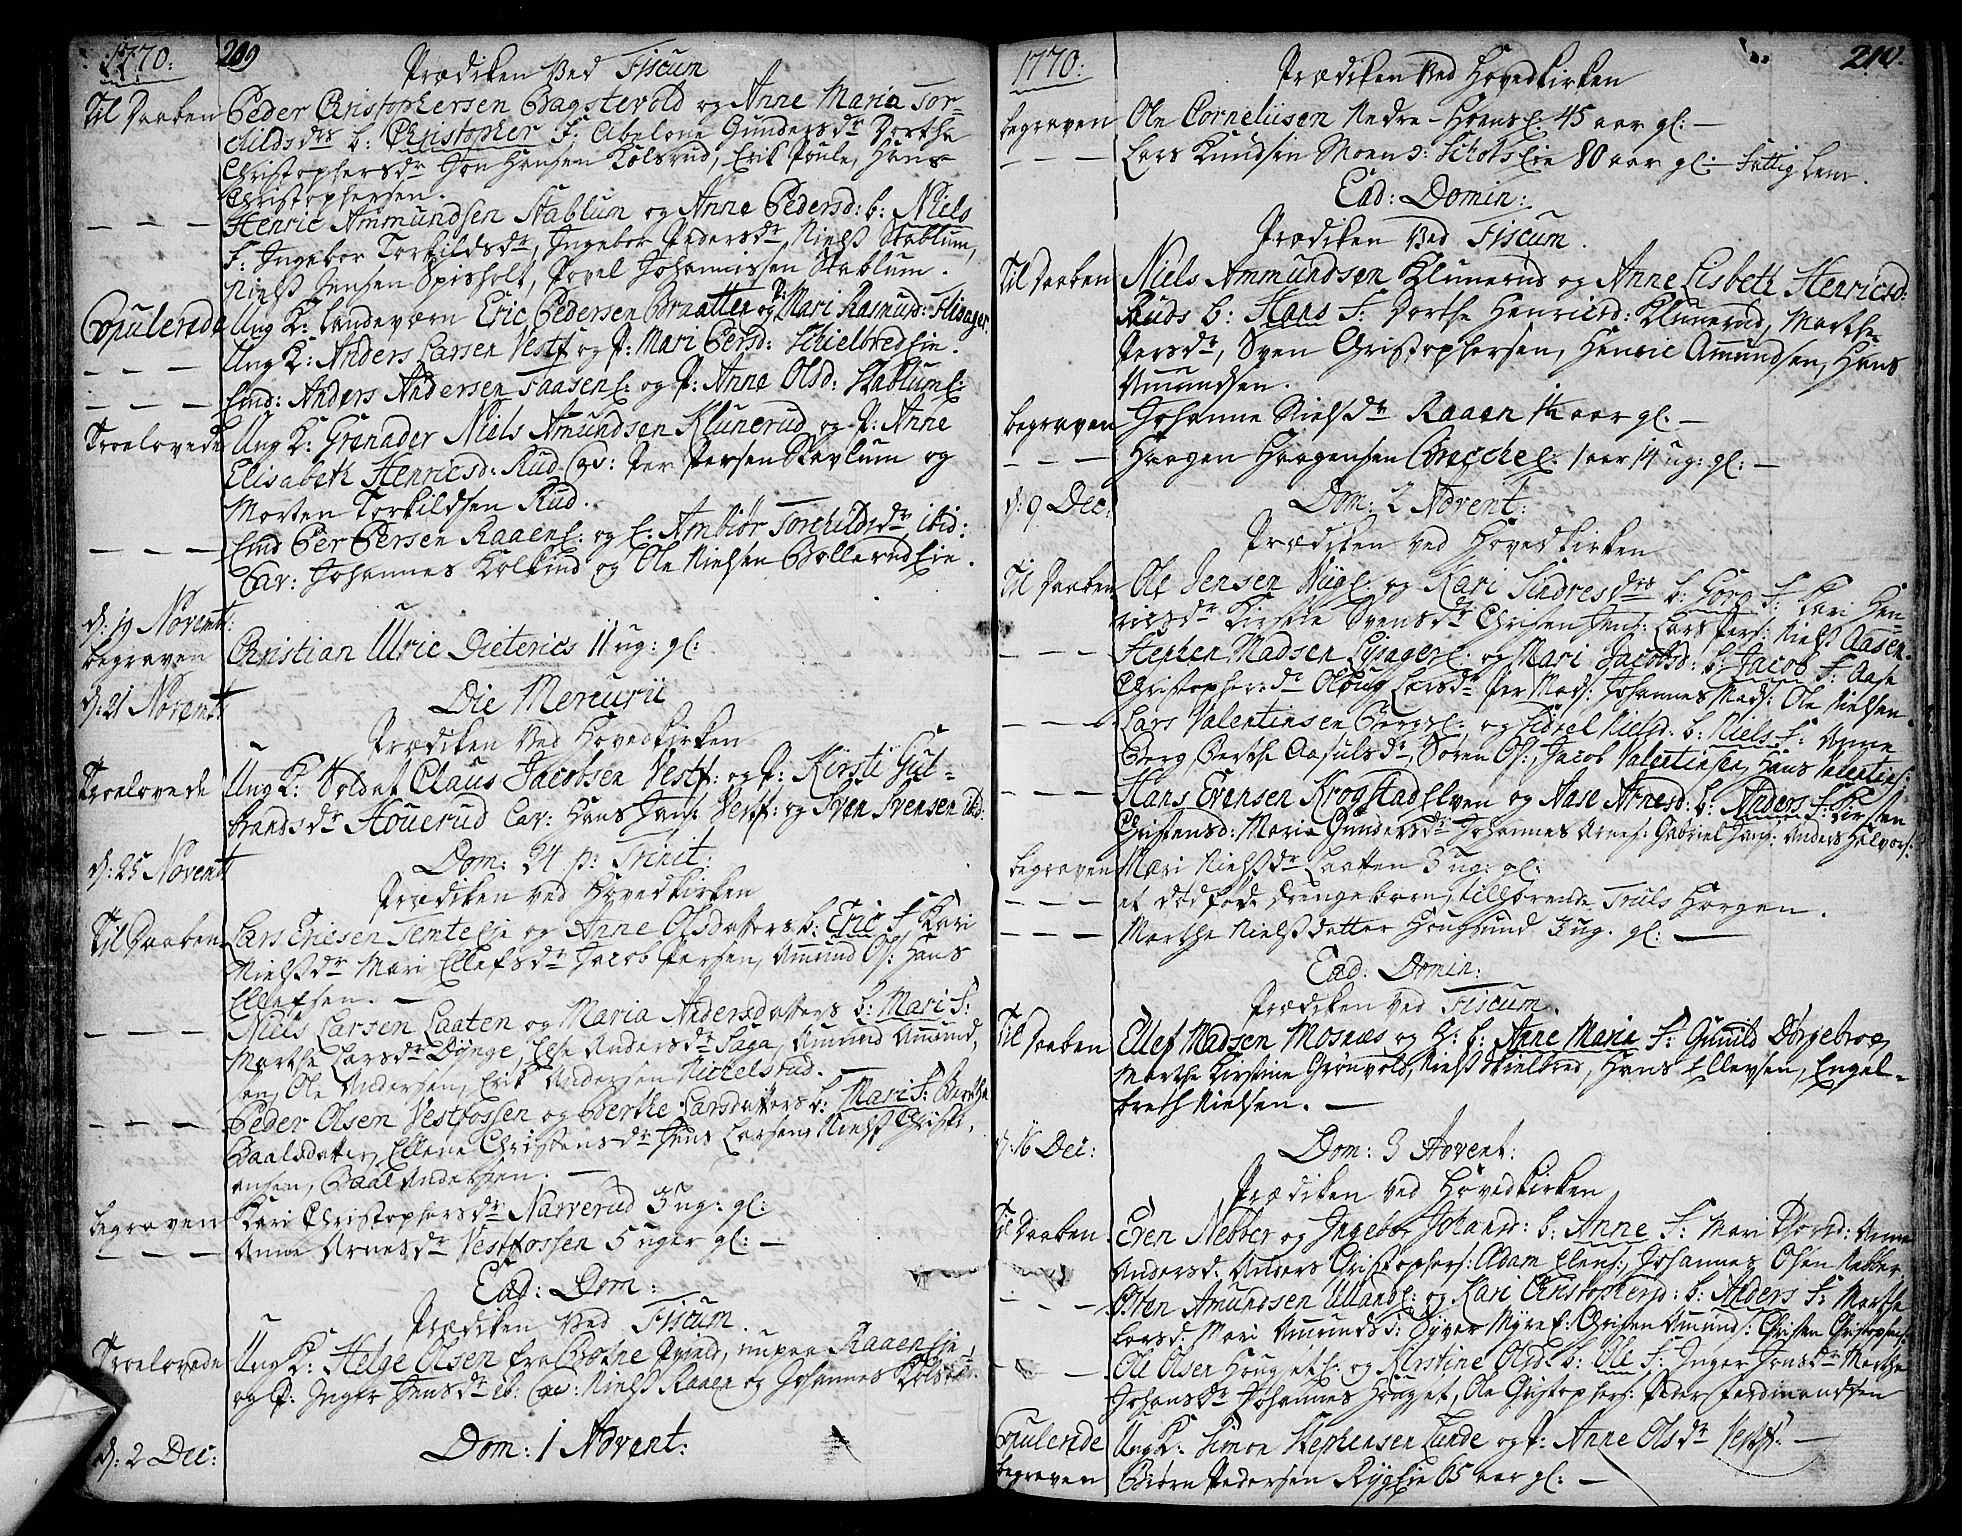 1770. 209
Prædiken Ved Fiscum
Til Daaben Peder Christophersen Bagstevold og Anne Maria Tor-
childsdrs b: Christopher F: Abelone Gundersdr Dorthe
Christophersdr Jon Hansen Kolsrud, Erik Poule, Hans
Christophersen.
— — — Henric Ammundsen Stablum og Anne Pedersd: b: Niels
F: Ingebor Torkildsdr, Ingebor Pedersdr, Niels Stablum,
Niels Jensen Spisholt, Povel Johannissen Stablum.
Copulerede Ung K: Landeværn Eric Pedersen Braatten og P: Mari Rasmusd: Flisager
— — — Ung K: Anders Larsen Vestf og P: Mari Persd: Schielbred Eie.
— — — Emd: Anders Andersen Faasen E: og P: Anne Olsd: Stablum E:
Troelovede Ung K: Grenader Niels Amundsen Klunerud og P: Anne
Elisabeth Henricsd: Rud Cav: Per Persen Stavlum og
Morten Torkildsen Rud.
— — — Emd Per Persen Raaen E: og E. Ambiør Torchildsdr ibid:
Cav: Johannes Kolkind og Ole Nielsen Bollerud Eie.
d: 19 Novembr:
begraven Christian Ulric Dieterics 11 ug: gl:
d: 21 Novembr Die Mercurii
Prædiken Ved Hovedkirken
Troelovede Ung K: Soldat Claus Jacobsen Vestf: og P: Kirsti Gul-
brandsdr Houerud Cav: Hans Jans: Vestf: og Sven Svensen ibid:
d: 25 Novembr Dom: 24 p: Trinit:
Prædiken ved Hovedkirken
Til Daaben Lars Ericsen Temte Eje og Anne Olsdatters b: Eric F: Kari
Nielsdr Mari Ellefsdr Jacob Persen, Amund Ols: Hans
Ellefsen. —
— — — Niels Larsen Laaten og Maria Andersdatters b: Mari F:
Marthe Larsdr Dynge, Else Andersdr Saga, Amund Amund,
sen, Ole Andersen, Erik Andersen Nickelsrud.
— — — Peder Olsen Vestfossen og Berthe Larsdatters b: Mari F: Berthe
Paalsdatter, Ellene Christensdr Jens Larsen, Niels Christi,
ansen, Paal Andersen. —
begraven Kari Christophersdr Narverud 3 ug: gl:
— — — Anne Arnesdr Vestfossen 5 uger gl: —
Ead: Dom:
Prædiken Ved Fiscum.
Troelovede Ung K: Helge Olsen fra Præst, nu paa Raaen Eje
og P: Inger Jensdr ib: Cav: Niels Raaen og Johannes Kolsrud.
d: 2 Dec: Dom: 1 Advent:
1770: 210.
Prædiken Ved Hovedkirken
begraven Ole Corneliisen Nedre-Hoens E. 45 aar gl: —
— — — Lars Knudsen Moen Schots Eie 80 aar gl: — Fattig Lem.
Ead: Domin:
Prædiken Ved Fiscum.
Til Daaben Niels Ammundsen Klunerud og Anne Lisbeth Henricsd:
Ruds b: Hans F: Dorthe Henricsd: Klunerud, Marthe
Persdr, Sven Christophersen, Henric Amundsen, Hans
Amundsen.
begraven Johanne Nielsdr Raaen 1½ aar gl: —
— — — Haagen Haagensen Brecche E. 1 aar 14 ug: gl: —
d: 9 Dec: Dom: 2 Advent:
Prædiken ved Hovedkirken
Til Daaben Ole Jensen Ryg E. og Kari Sindresdrs b: Goro F: Kari Hen-
ricsdr Kirstie Svensdr Christen Jens: Lars Pers: Niels Aasen.
— — — Stephen Madsen Lysager E. og Mari Jacobsd: b: Jacob F: Aase
Christophersdr Oloug Larsdr Per Mads: Johannes Mads: Ole Nielsen.
— — — Lars Valentinsen Bergs E: og Sidsel Nielsd: b: Niels F: Anne
Berg, Berthe Aasulsdr, Søren Ols:, Jacob Valentinsen, Hans Valentins:
— — — Hans Evensen Krogstad Elven og Aase Arnesd: b: Anders F: Kirsten
Christensd: Maria Gundersdr Johannes Arnes: Gabriel Jans: Anders Halvors:
begraven Mari Nielsdr Laatten 3 ug: gl:
— — — et død født Drengebarn, tilhørende Truls Horgen.
— — — Marthe Nielsdatter Hougsund 3 ug. gl: —
Ead: Domin:
Prædiken ved Fiscum.
Til Daaben Ellef Madsen Mosnæs og H: b: Anne Maria F: Gunild Dørgebroe,
Marthe Kirstine Grønvold, Niels Skielbred, Hans Ellevsen, Engel-
breth Nielsen. —
d: 16 Dec: Dom: 3 Advent:
Prædiken ved Hovedkirken
Til Daaben Even Nebber og Ingebor Johansd: b: Anne F: Mari Anne
Andersd. Anders Christophers: Adam Ellens:, Johannes Olsen Nebber.
— — — Sten Amundsen Ulland E: og Kari Christophersd: b: Anders F: Marthe
Larsd: Mari Amundsd: Syver Myre E: Christen Amunds: Christen Christophers:
— — Ole Olsen Houget E: og Kirstine Olsd: b: Ole F: Inger Jonsdr Marthe
Johansdr Johannes Houget, Ole Christophers: Peder Ferdinandsen
Copulerede Ung K: Simon Stephensen Lunde og P: Anne Olsdr Vestf: —
begraven Biørn Pedersen Ryg Eie 65 aar gl: —